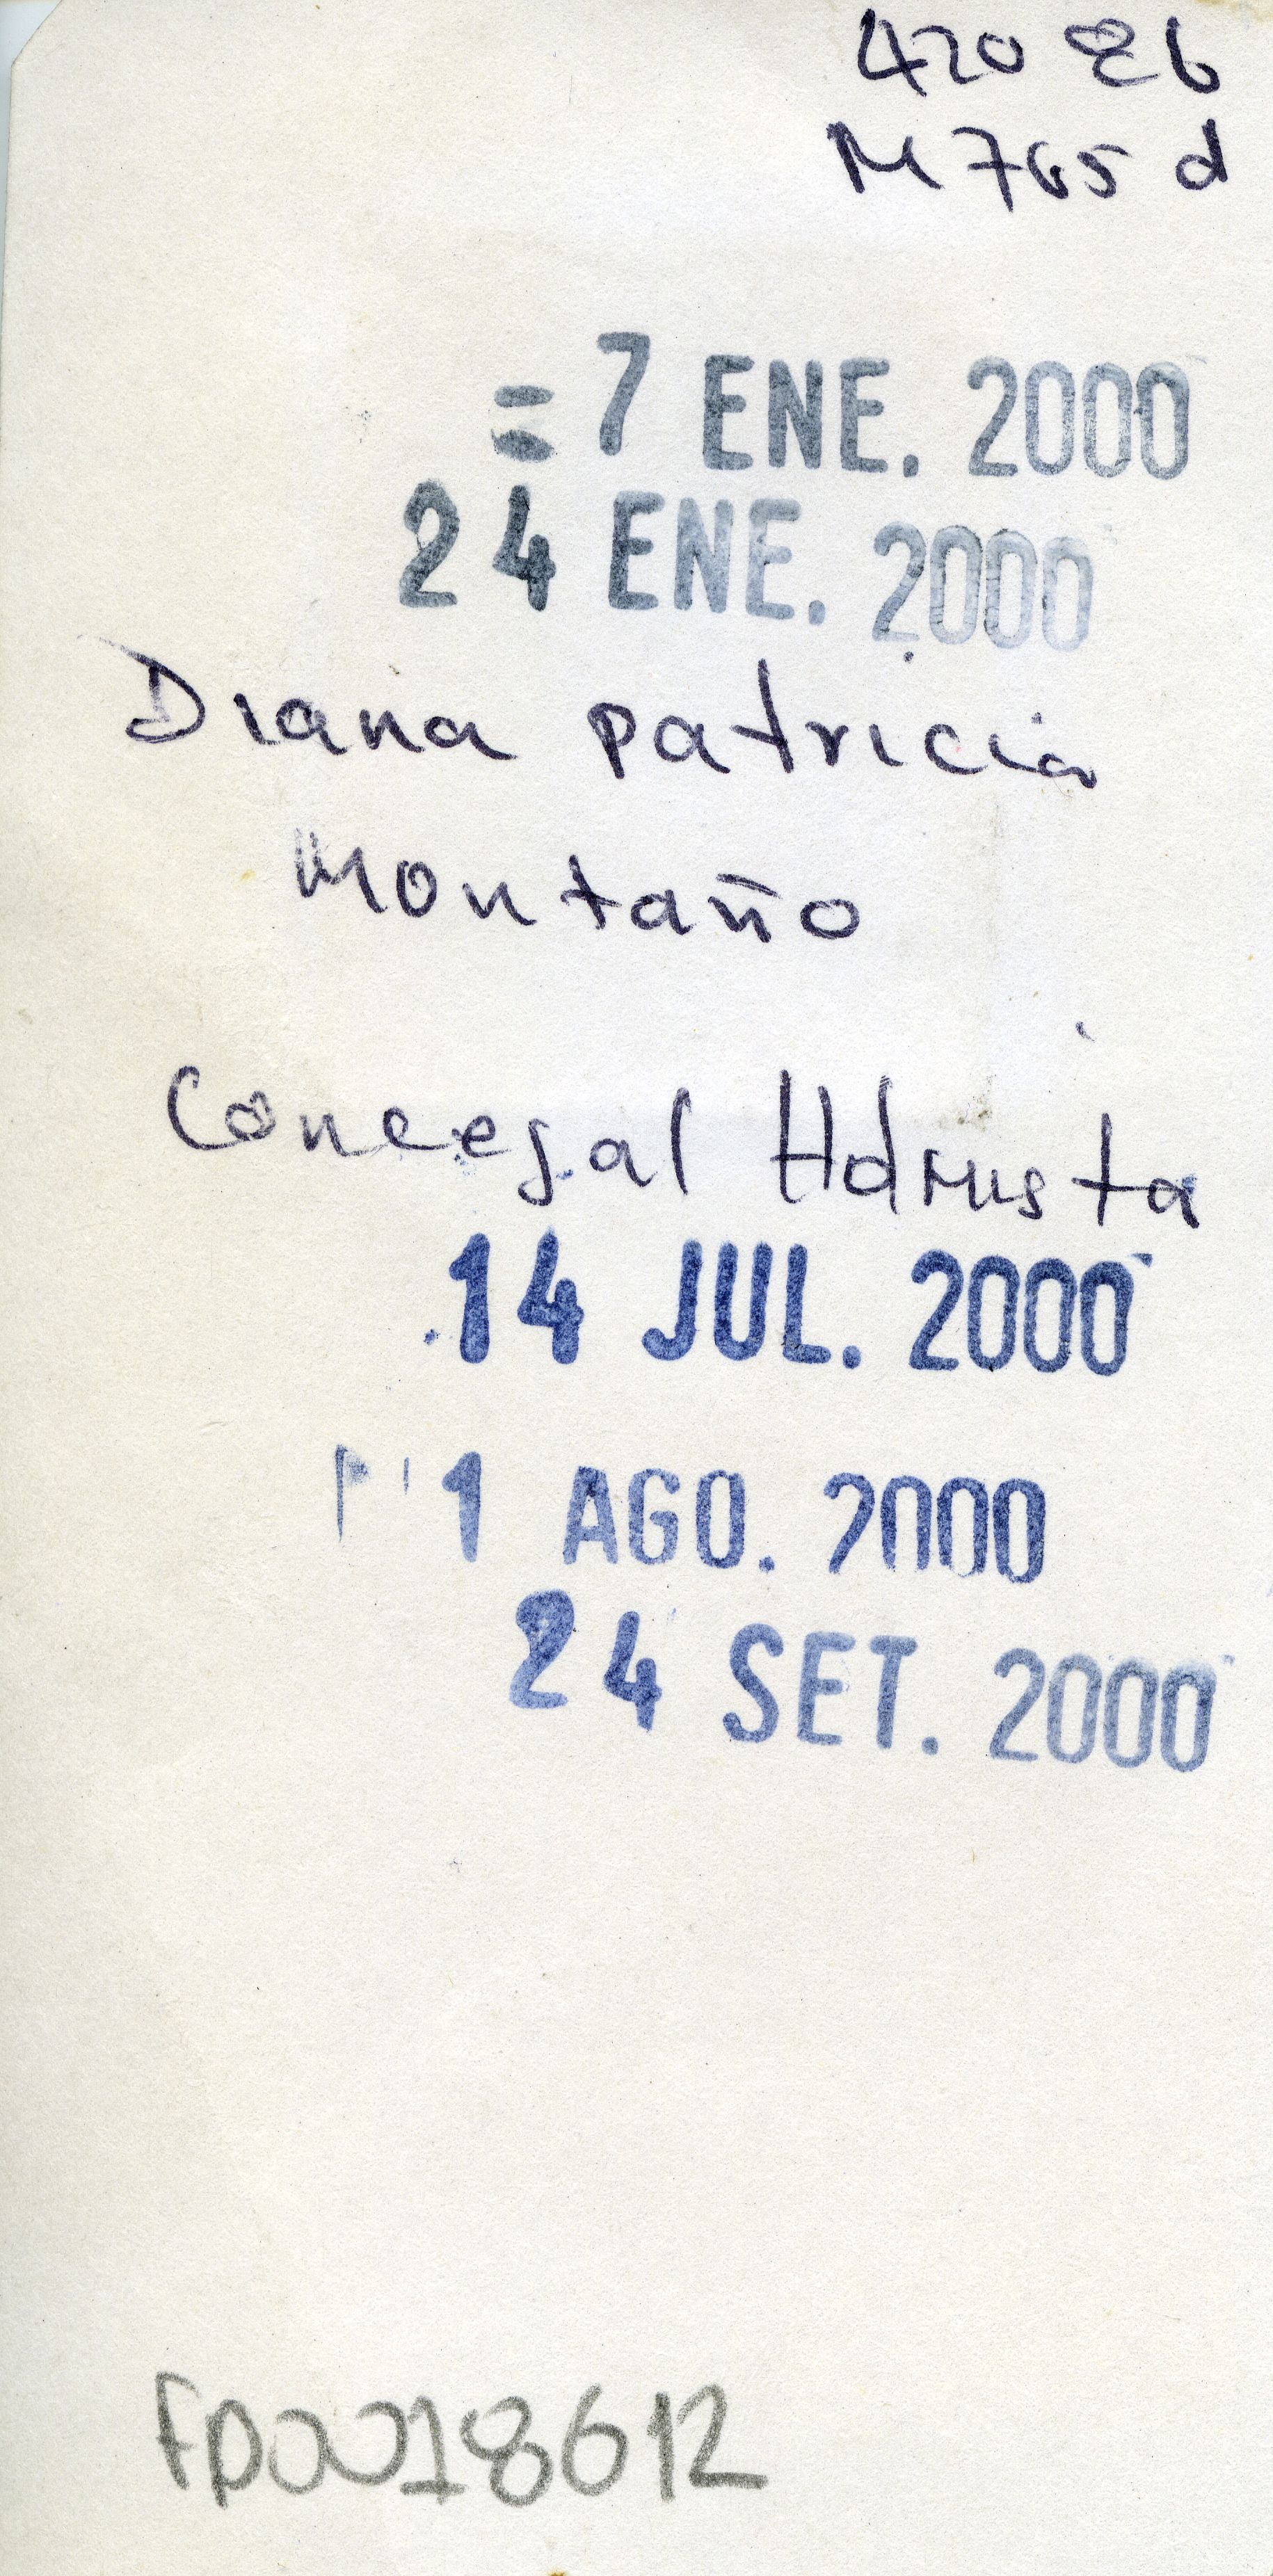 420 86
M 765 d
= 7 ENE. 2000
24 ENE. 2000
Diana patricia
Montaño
Concejal
14 JUL. 2000
1 AGO. 2000
24 SET. 2000
FD0018612